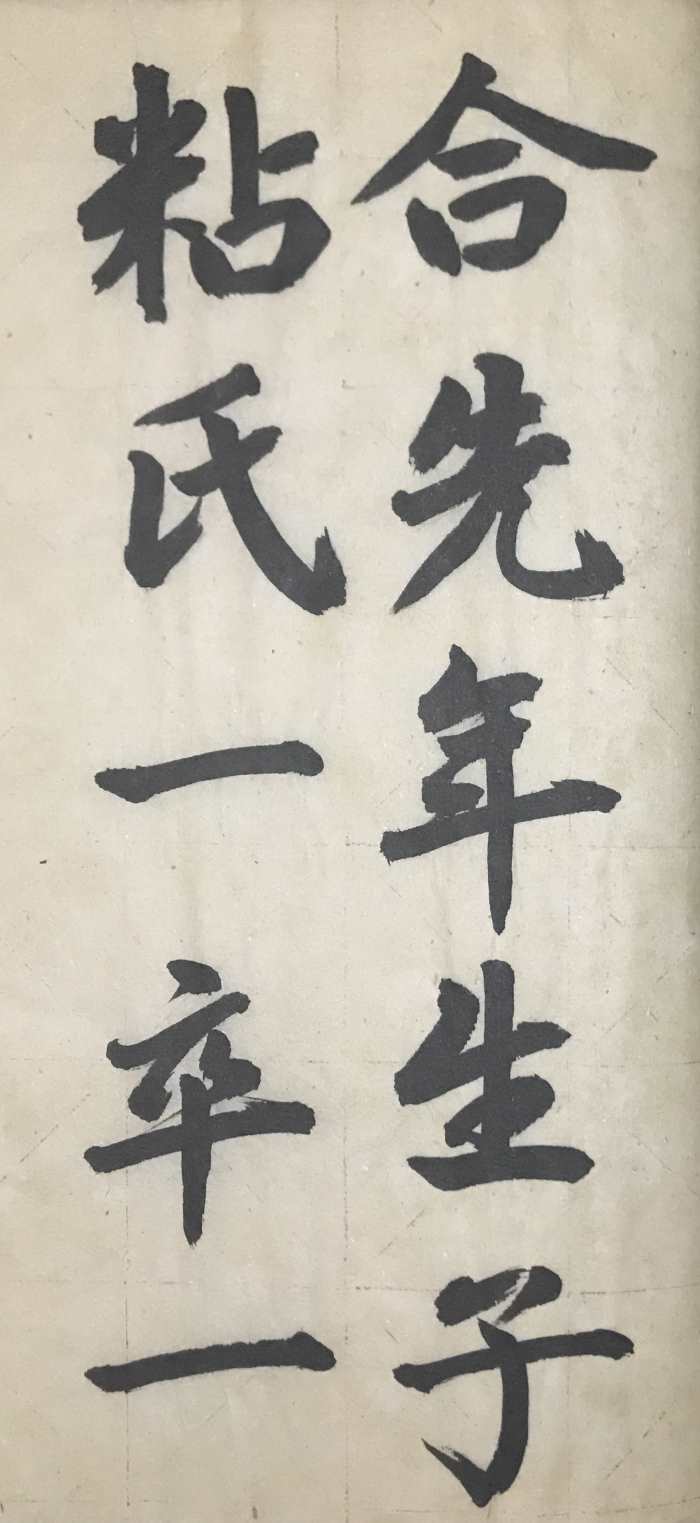 合先年生子
粘氏一卒一